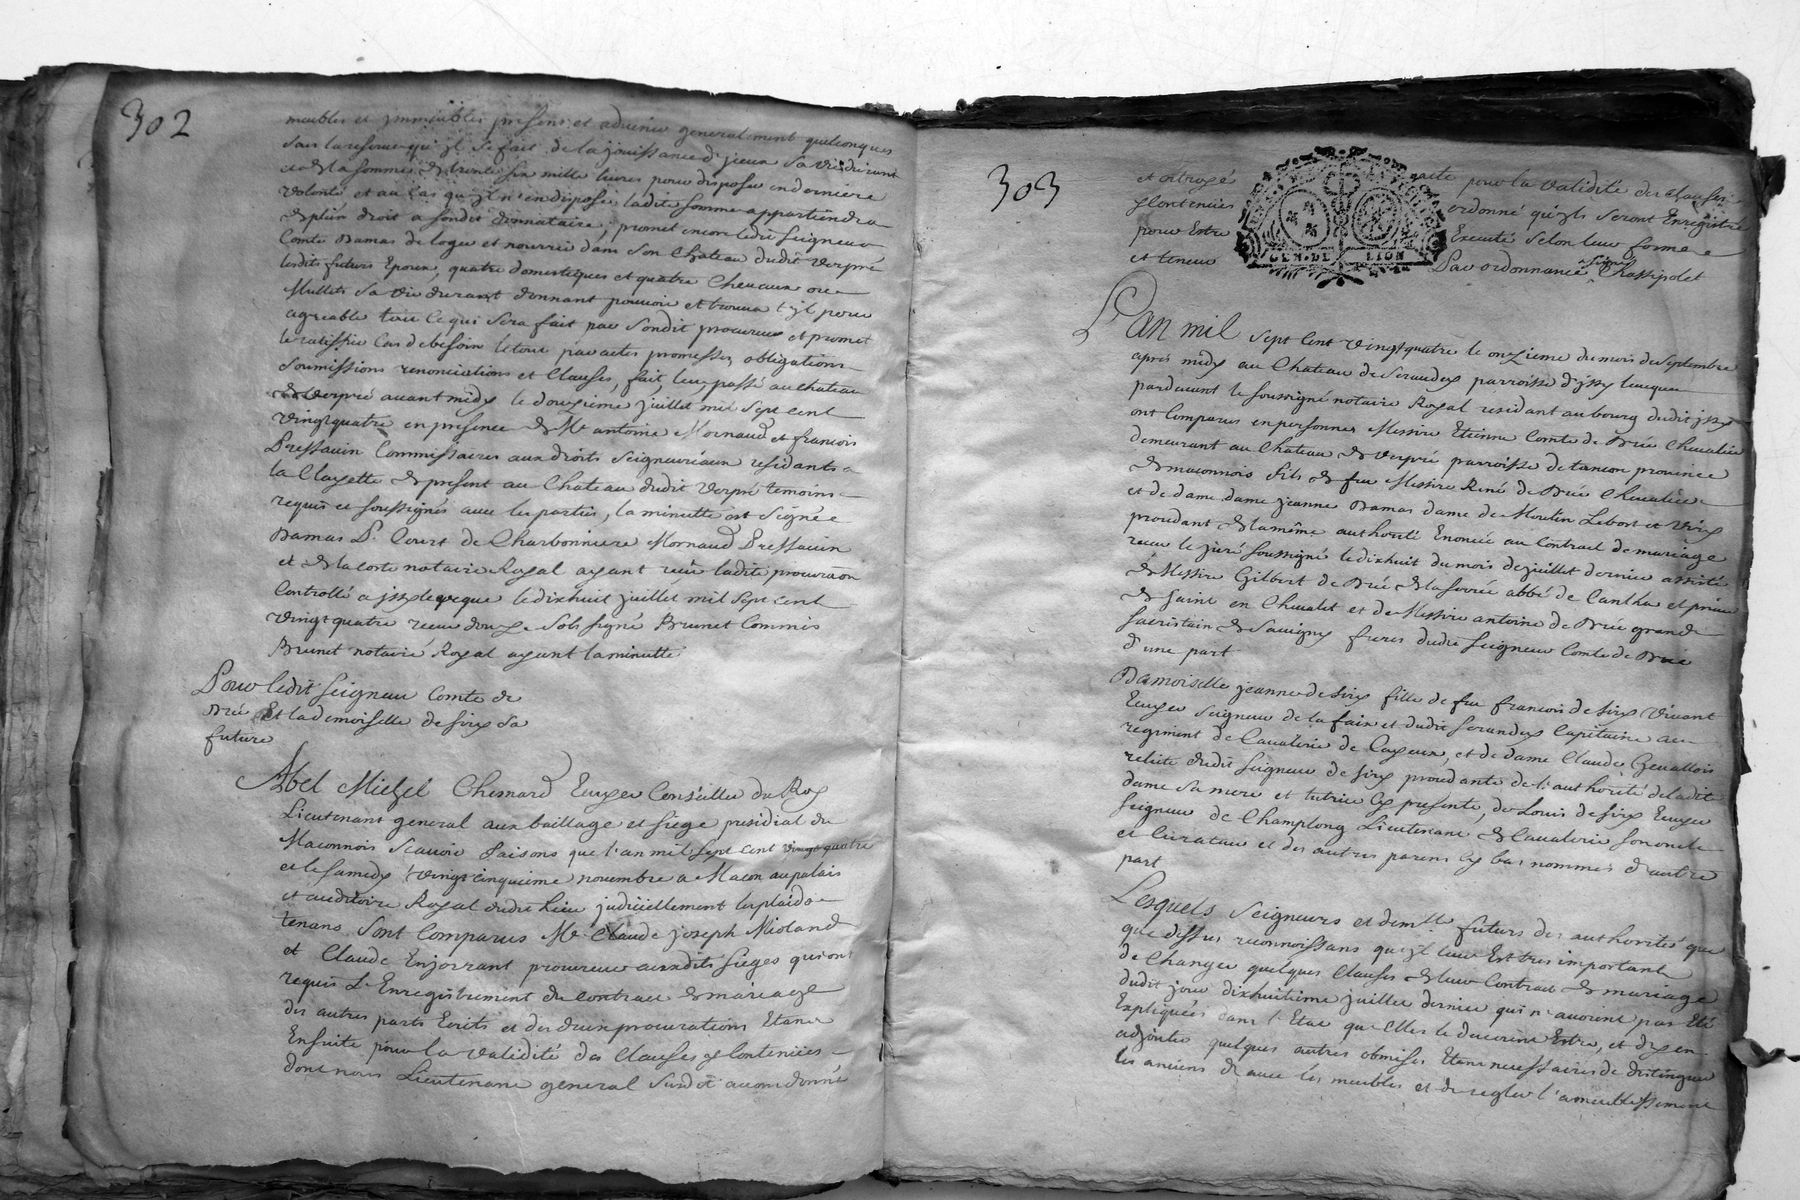 302
meubles et jmmeubles presens et advenir generalment quelconques
sous la reserve qu'jl se fait de la jouissance d'jceux sa vie durant
et de la somme de trente six mille livres pour disposer en derniere
volonté et au cas qu'jl n'en dispose ladite somme appartiendra
de plein droit a sondit donnataire, promet encor ledit seigneur
Comte Damas de loger et nourrir dans son Chateau dudit Verpré
lesdits futurs Epoux, quatre domestiques et quatre Chevaux ou
Mullets sa vie durant donnant pouvoir et trouvant jl pour
agreable tout ce qui sera fait par sondit procureur et promet
le ratiffier Cas de besoin le tout par actes promesses obligations
soumissions renonciations et Clauses, fait, leu, passé au chateau
de Verpré avant midy le douzieme juillet mil sept cent
vingt quatre en presence de Me antoine Mornaud et francois
Pressavin Commissaires aux droits seigneuriaux residants a
la Clayette de present au Chateau dudit Verpré temoins
requis et soussignés avec les parties, la minutte est signée
Damas D. Court de Charbonniere Mornaud Pressavin
et de la coste notaire Royal ayant reçu ladite procuraon
Controllé a jssy leveque le dixhuit juillet mil sept cent
vingt quatre receu douze sols signé Brunet Commis
Brunet notaire Royal ayant la minutte
Pour ledit seigneur Comte de
Drée Et la demoiselle de siry sa
future
Abel Michel Chesnard Ecuyer Conseiller du Roy
Lieutenant general aux baillage et siege presidial du
Maconnois Scavoir faisons que l'an mil sept cent vingt quatre
et le samedy vingt cinquieme novembre a Macon au palais
et auditoire Royal dudit lieu judiciellement les plaids
tenans sont comparus Me Claude joseph Mioland
et Claude Enjorrant procureurs auxdits sieges qui ont
requis L'Enregistrement du contract de mariage
des autres parts Ecrits et des deux procurations Etant
Ensuite pour la validité des Clauses y Contenües
dont nous Lieutenant general susdit avons donné
303
et octroyé acte pour la validité des clauses
y contenües ordonné qu'jls seront Enregistré
pour Estre Executé selon leur forme
et teneur Par ordonnance signé Chassipolet
GEN. DE LION
L'an mil sept Cent vingt quatre le onzieme du mois de septembre
apres midy au Chateau de Seraudey parroisse d'jssy leveque
pardevant le soussigné notaire Royal residant au bourg dudit jssy
ont Comparus en personnes Messire Etienne Comte de Drée Chevalier
demeurant au Chateau de Verpré parroisse de tancon province
de maconnois fils de feu Messire René de Drée Chevalier
et de dame dame jeanne Damas dame de Moulin Lebost et Viry
procedant de la même authorité Enoncée au Contract de mariage
receu le juré soussigné le dixhuit du mois de juillet dernier assisté
de Messire Gilbert de Drée de la serrée abbé de Cantha et prieur
de saint en Chevalet et de Messire antoine de Drée grand
sacristain de Savigny freres dudit seigneur Comte de Drée
d'une part
Damoiselle jeanne de siry fille de feu francois de siry vivant
Ecuyer seigneur de la faix et dudit seraudey Capitaine au
regiment de Cavalerie de Cayeux, et de dame Claude Gevallois
relicte dudit seigneur de siry procedante de l'authorité de ladite
dame sa mere et tutrice cy presente, de Louis de siry Ecuyer
seigneur de Champlong Lieutenant de Cavalerie son oncle
et Curateur et des autres parens cy bas nommés d'autre
part
Lesquels seigneurs et demlle futurs des authorités que
que dessus reconnoissans qu'jl leur Est tres important
de Changer quelques Clauses de leur Contract de mariage
dudit jour dixhuitieme juillet dernier qui n'auront pas Eté
Expliquées dans l'Etat qu'elles le devoient Estre, et d'y en
adjouter quelques autres obmises Etant necessaires de distinguer
les anciens de avec les meubles et de regler l'ameublissement